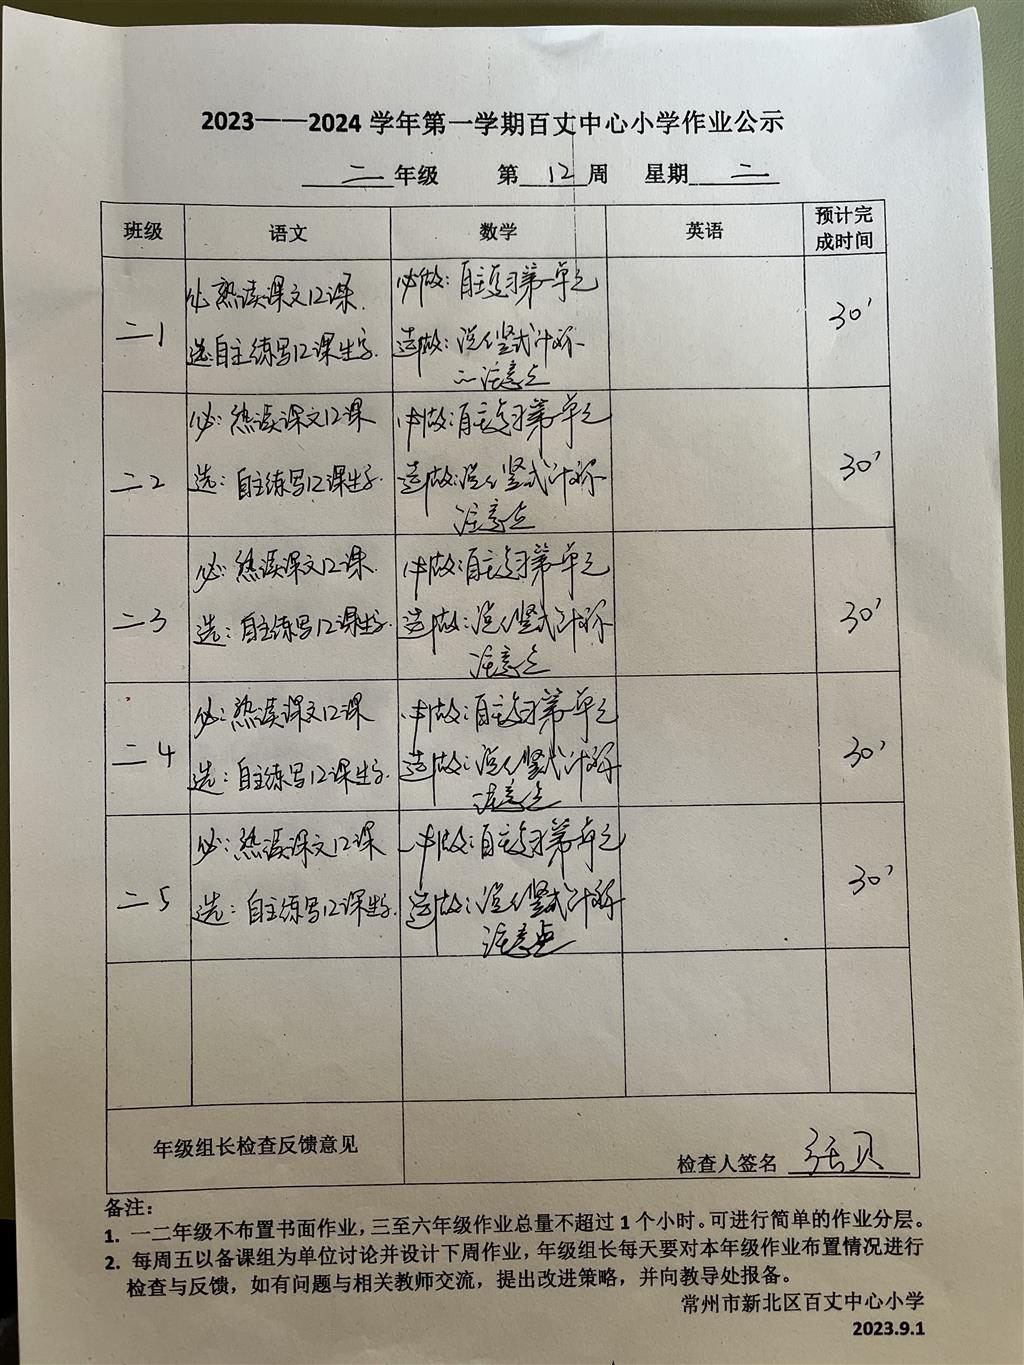 2023——2024 学年第一学期百丈中心小学作业公示
二年级 第12周 星期二
班级 语文 数学 英语 预计完成时间
二1
必熟读课文12课.
选:自主练写12课生字.
必做：自主复习第一单元
选做：说说竖式计算
的注意点
30'
二2
必：熟读课文12课
选：自主练写12课生字.
必做：自主复习第一单元
选做：说说竖式计算
注意点
30'
二3
必：熟读课文12课.
选：自主练写12课生字.
必做：自主复习第一单元
选做：说说竖式计算
注意点
30'
二4
必：熟读课文12课
选：自主练写12课生字.
必做：自主复习第一单元
选做：说说竖式计算
注意点
30'
二5
必：熟读课文12课
选：自主练写12课生字.
必做：自主复习第一单元
选做：说说竖式计算
注意点
30'
年级组长检查反馈意见
检查人签名 张贝
备注：
1. 一二年级不布置书面作业，三至六年级作业总量不超过 1 个小时。可进行简单的作业分层。
2. 每周五以备课组为单位讨论并设计下周作业，年级组长每天要对本年级作业布置情况进行
检查与反馈，如有问题与相关教师交流，提出改进策略，并向教导处报备。
常州市新北区百丈中心小学
2023.9.1